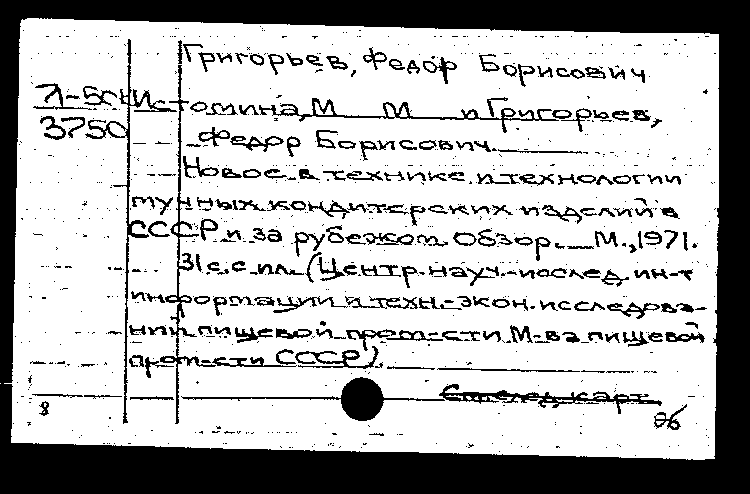 Григорьев, Федор Борисович
Л-50к Истомина, М М и Григорьев,
3750 Федор Борисович.
Новое в технике и технологии
мучных кондитерских изделий в
СССР и за рубежом. Обзор. М., 1971.
31 с. с ил. (Центр. науч.-исслед. ин-т
информации и техн.-экон. исследова-
ний пищевой пром-сти М-ва пищевой
пром-сти СССР).
См. след. карт.
8